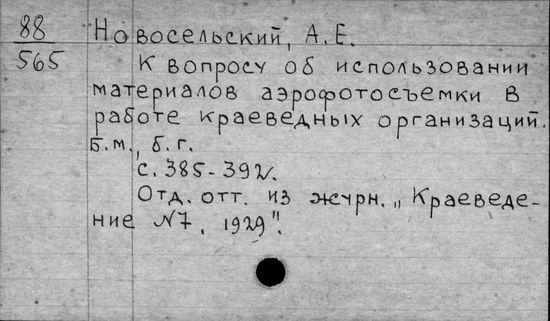 88
565
Новосельский, А.Е.
К вопросу об использовании
материалов аэрофотосъемки в
работе краеведных организаций.
Б.м., б.г.
с. 385-392.
Отд. отт. из журн. „Краеведе-
ние №7, 1929".